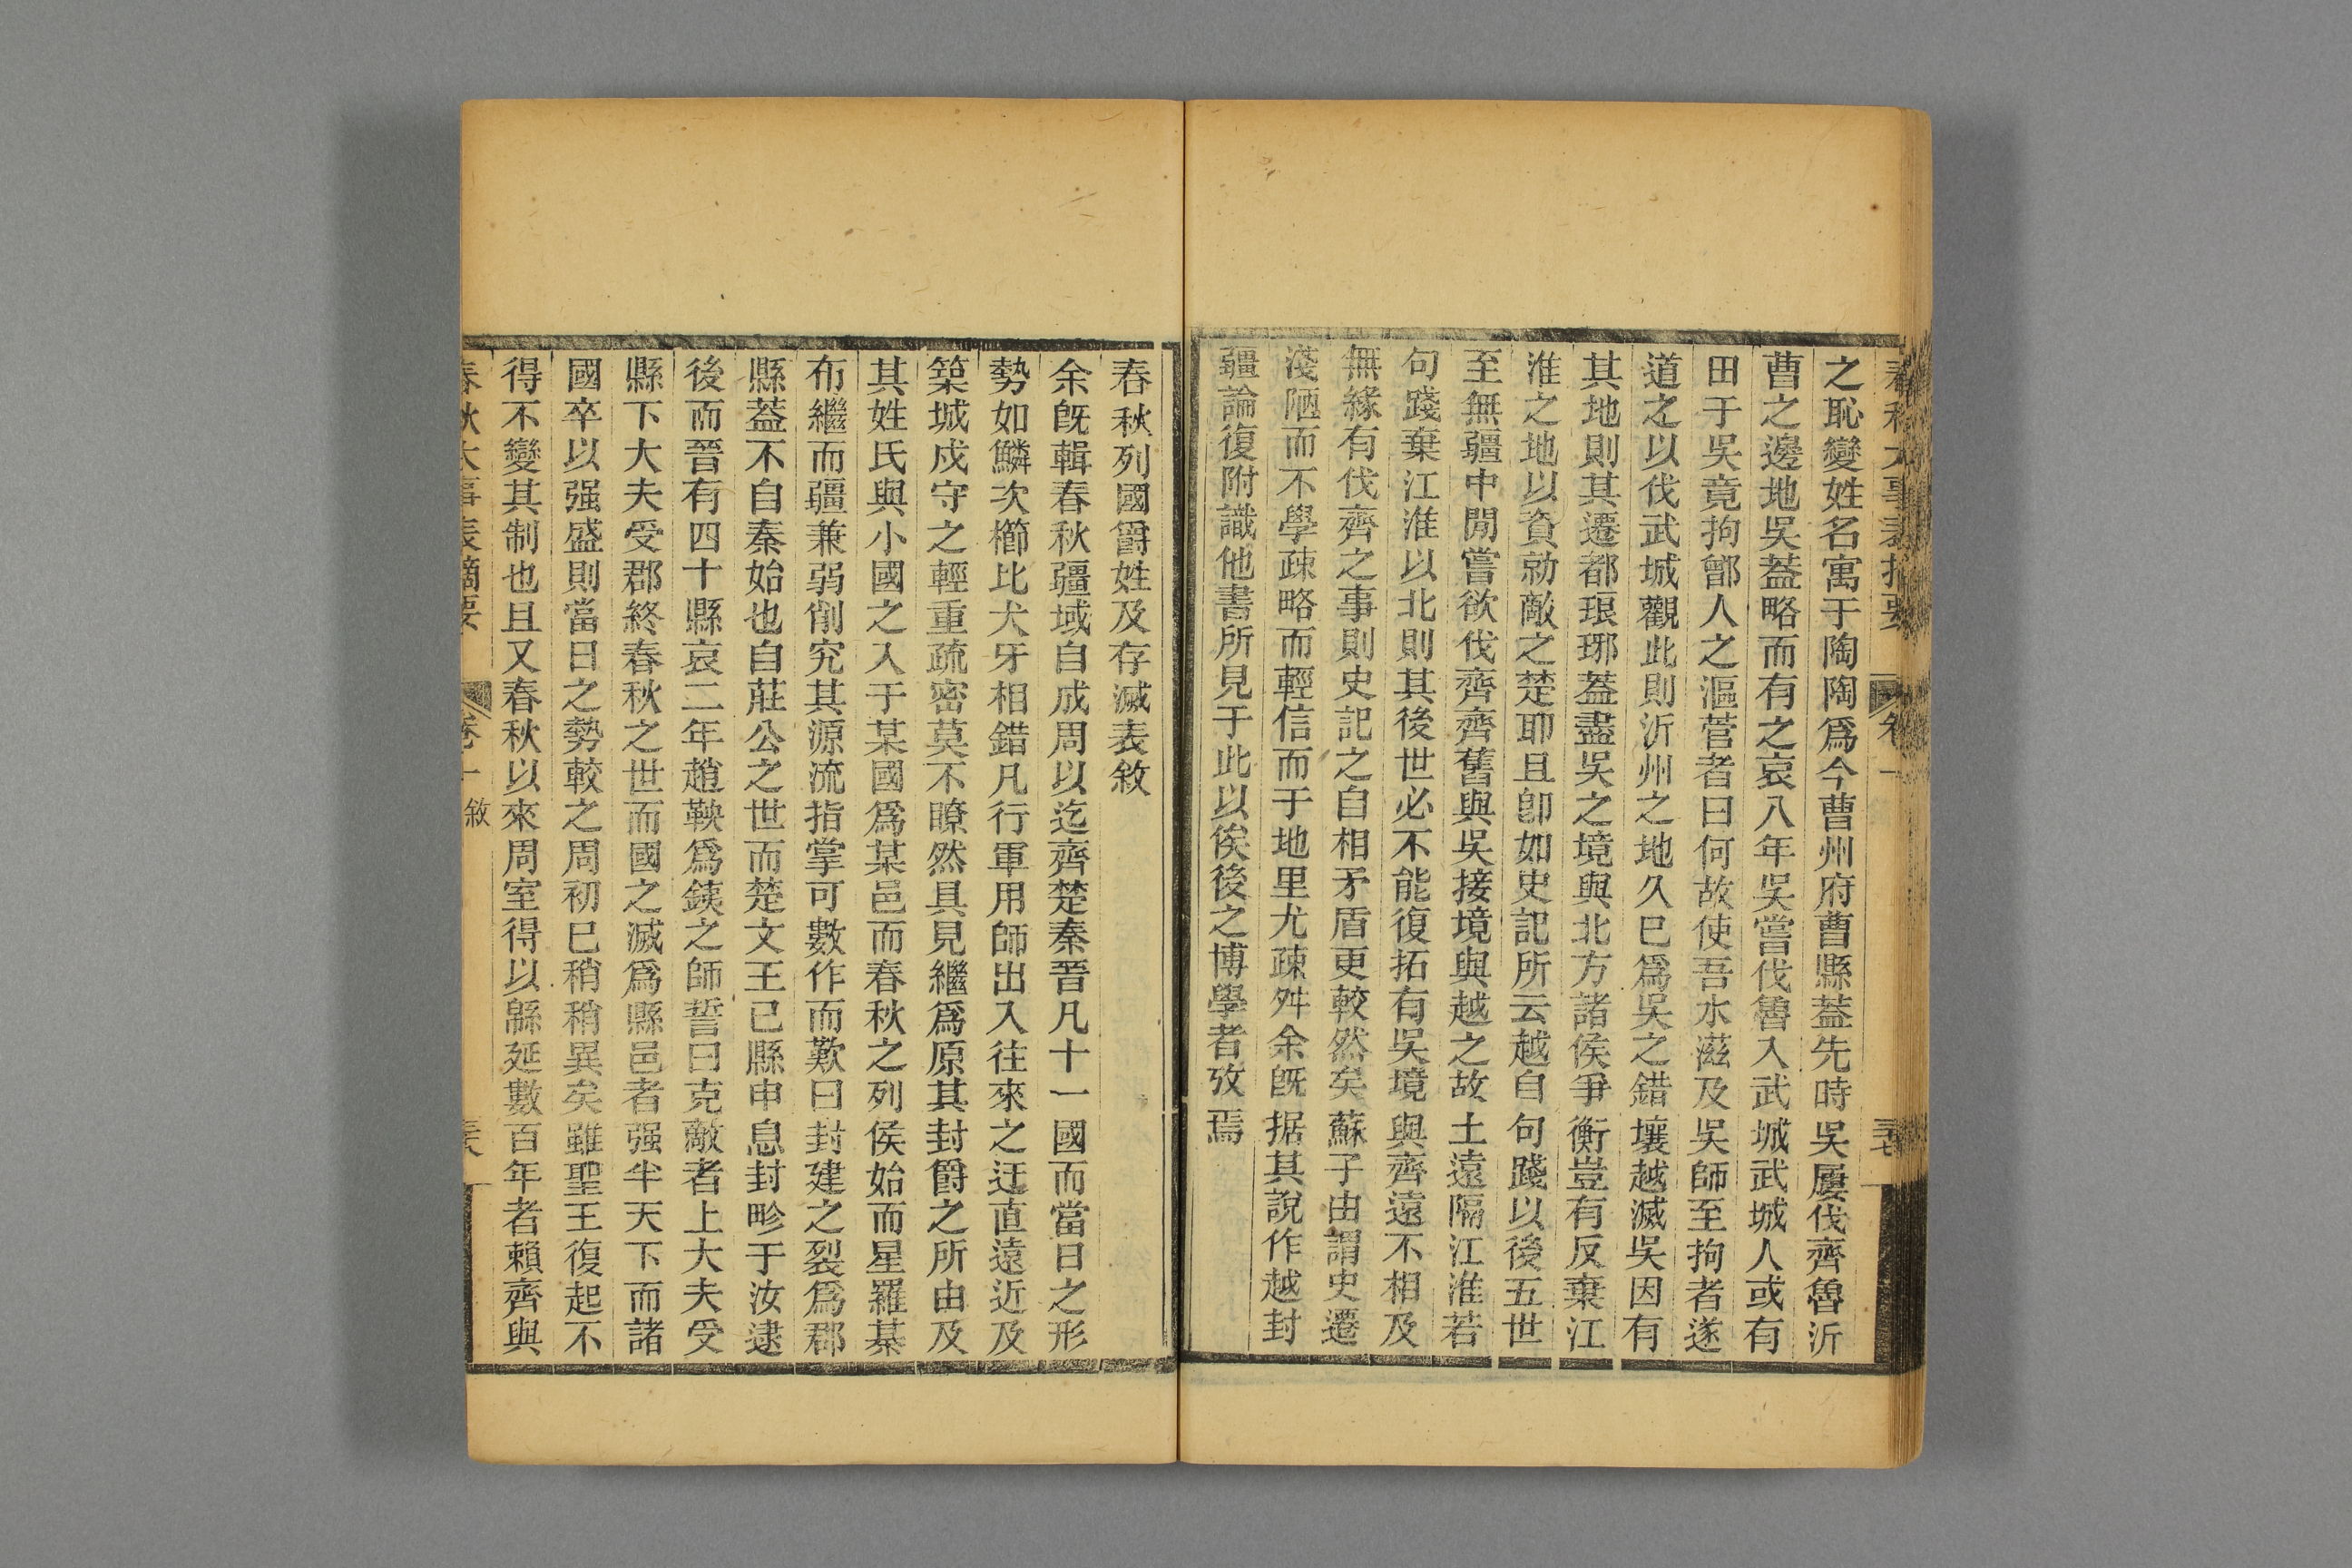 春秋大事表摘要 卷一 三七
之恥變姓名寓于陶陶爲今曹州府曹縣葢先時吳屢伐齊魯沂
曹之邊地吳葢略而有之哀八年吳嘗伐魯入武城武城人或有
田于吳竟拘鄫人之漚菅者曰何故使吾水滋及吳師至拘者遂
道之以伐武城觀此則沂州之地久巳爲吳之錯壤越滅吳因有
其地則其遷都琅琊葢盡吳之境與北方諸侯爭衡豈有反棄江
淮之地以資勍敵之楚耶且卽如史記所云越自句踐以後五世
至無疆中閒嘗欲伐齊齊舊與吳接境與越之故土遠隔江淮若
句踐棄江淮以北則其後世必不能復拓有吳境與齊遠不相及
無緣有伐齊之事則史記之自相矛盾更較然矣蘇子由謂史遷
淺陋而不學疎略而輕信而于地里尤疎舛余旣据其說作越封
疆論復附識他書所見于此以俟後之博學者攷焉
春秋列國爵姓及存滅表敘
余旣輯春秋疆域自成周以迄齊楚秦晉凡十一國而當日之形
勢如鱗次櫛比犬牙相錯凡行軍用師出入往來之迂直遠近及
築城戍守之輕重疏密莫不瞭然具見繼爲原其封爵之所由及
其姓氏與小國之入于某國爲某邑而春秋之列侯始而星羅棊
布繼而疆兼弱削究其源流指掌可數作而歎曰封建之裂爲郡
縣葢不自秦始也自莊公之世而楚文王已縣申息封畛于汝逮
後而晉有四十縣哀二年趙鞅爲鐵之師誓曰克敵者上大夫受
縣下大夫受郡終春秋之世而國之滅爲縣邑者强半天下而諸
國卒以强盛則當日之勢較之周初巳稍稍異矣雖聖王復起不
得不變其制也且又春秋以來周室得以緜延數百年者賴齊與
春秋大事表摘要 卷十 敘 三六